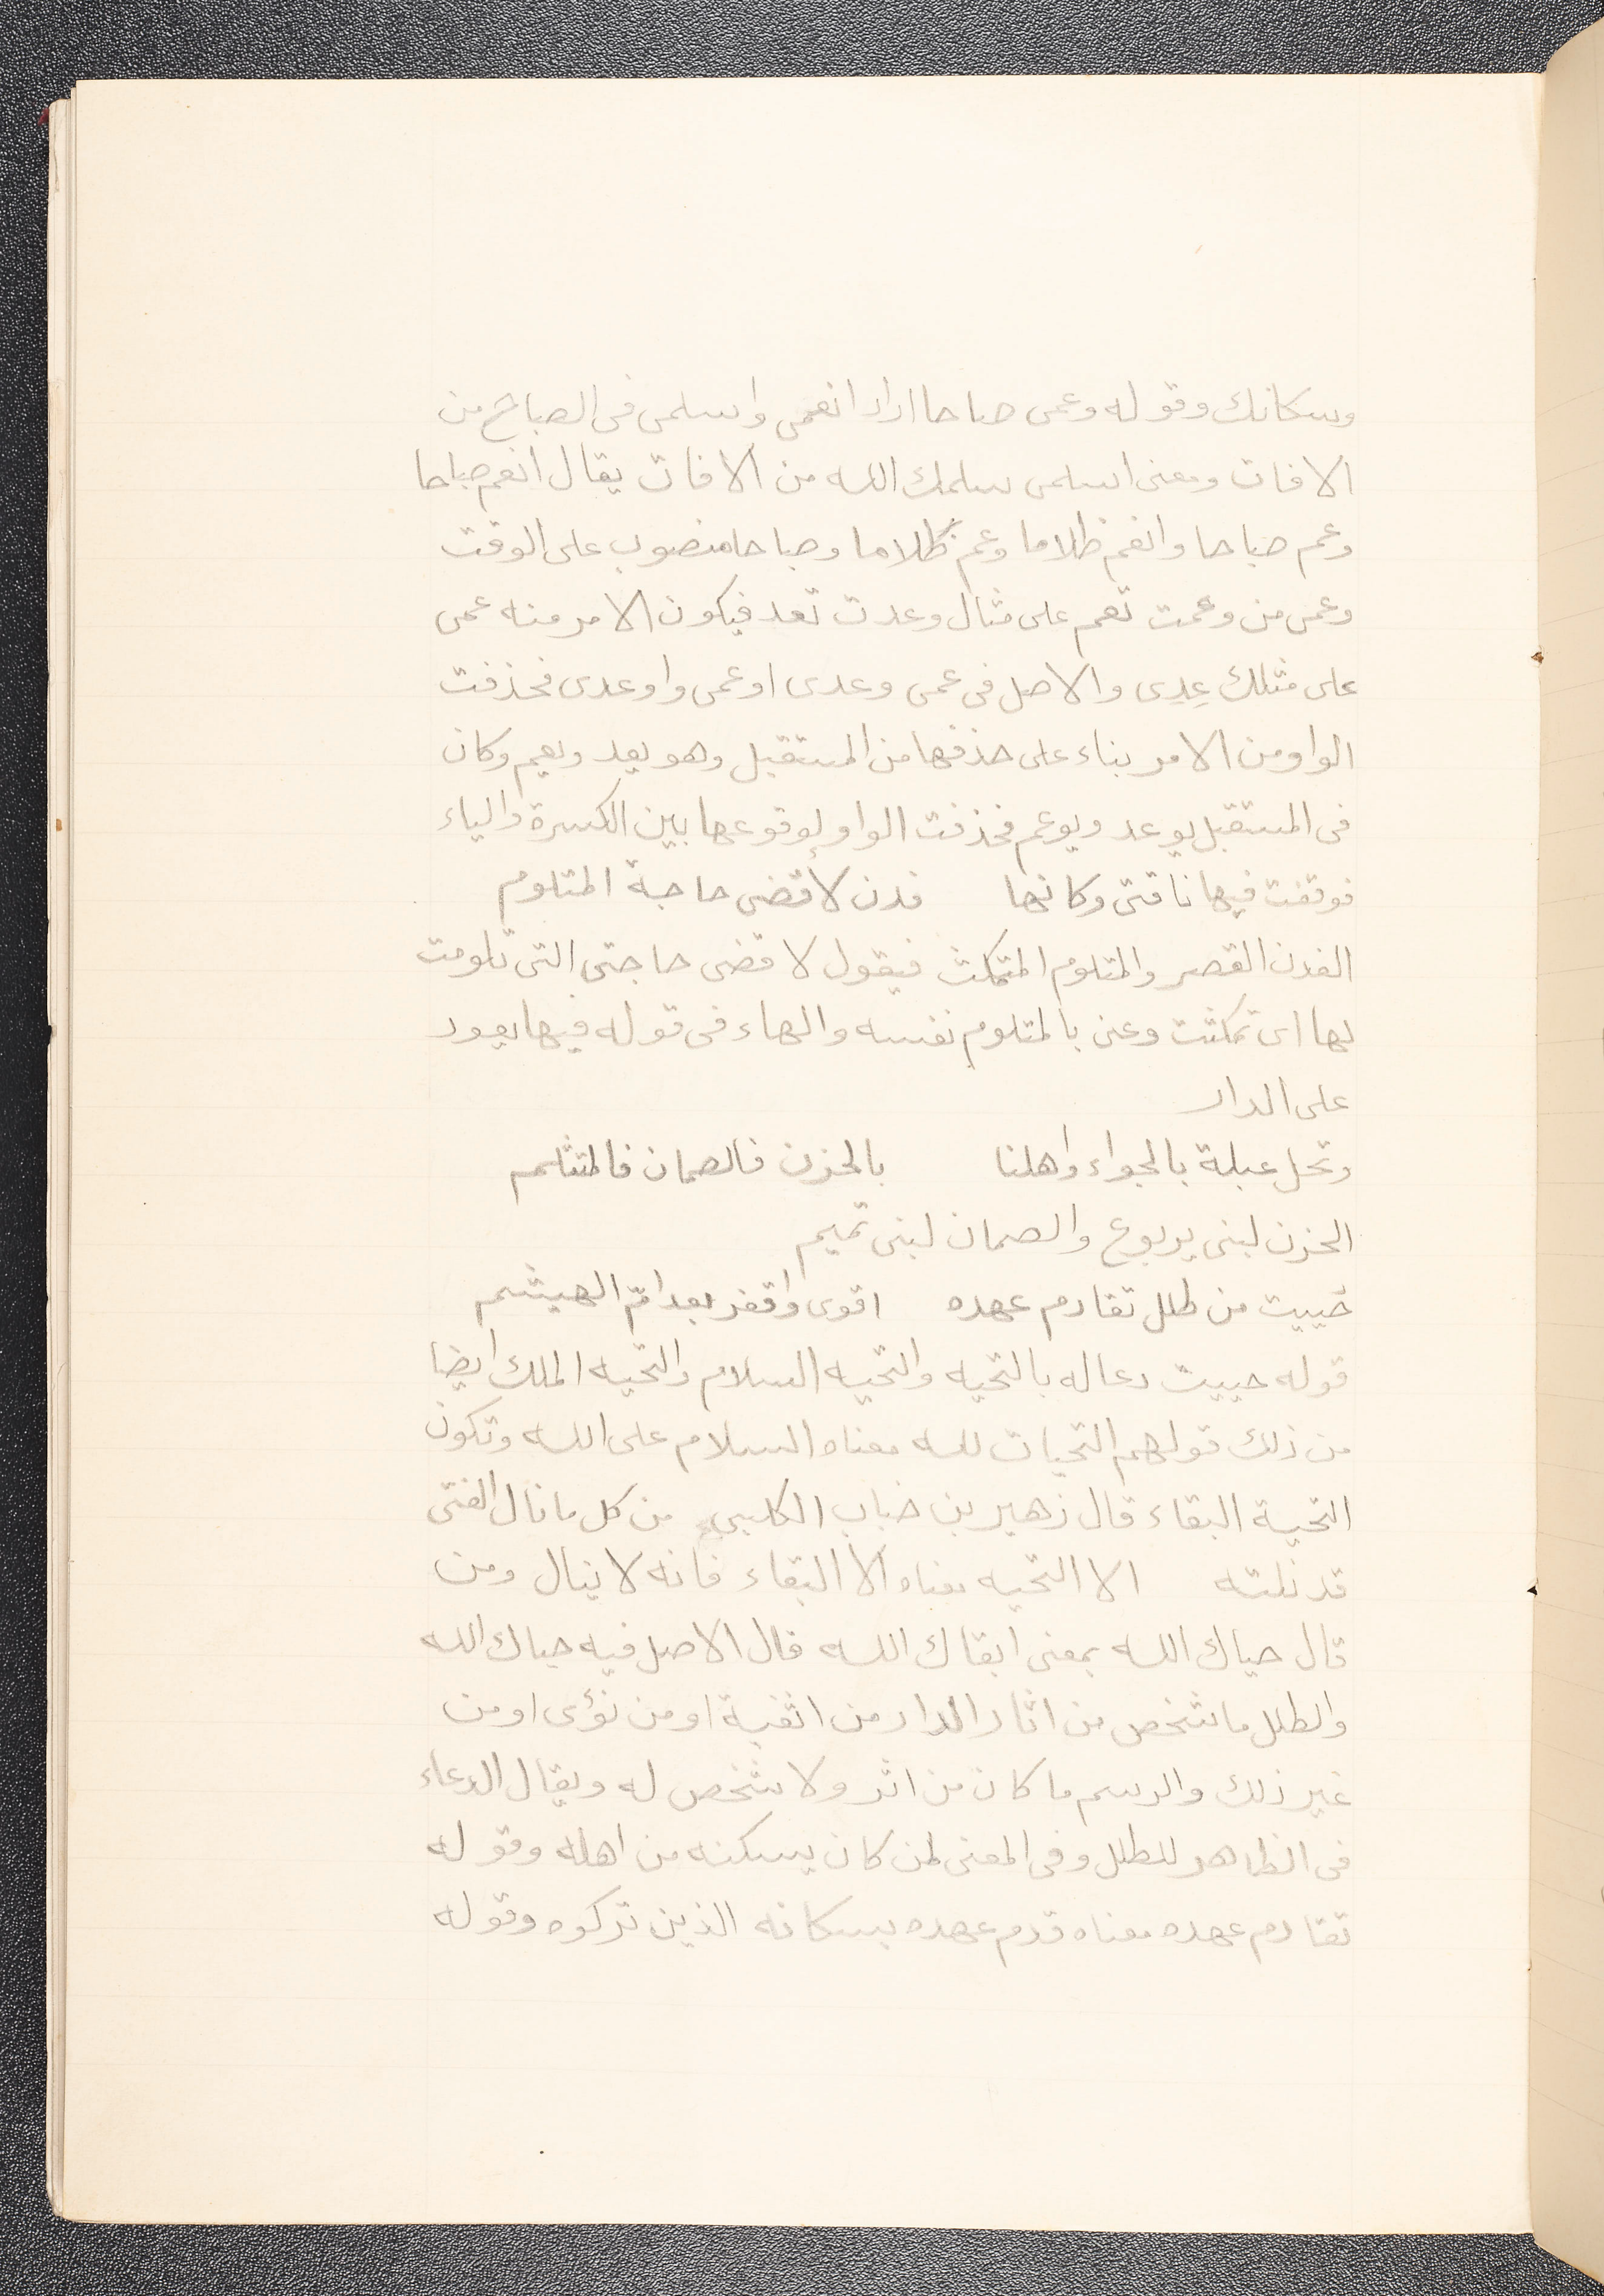 وسكانك وقوله وعمى صباحا اراد انعمى واسلمى فى الصباح من
الافات ومعنى اسلمى سلمك الله من الافات يقال انعم صباحا
وعم صباحا وانعم ظلاما وعم ظلاما وصباحا منصوب على الوقت
وعمى من وعمت تعم على مثال وعدت تعد فيكون الامر منه عمى
على مثلك عِدِى والاصل فى عمى وعدى اوعمى واوعدى فحذفت
الواو من الامر بناء على حذفها من المستقبل وهو يعد ويعم وكان
فى المستقبل يوعد ويوعم فحذفت الواو لوقوعها بين الكسرة والياء
فوقفت فيها ناقتى وكانها فدن لأقضى حاجة المتلوم
الفدن القصر والمتلوم المتمكث فيقول لاقضى حاجتى التى تلومت
لها اى تمكثت وعنى بالمتلوم نفسه والهاء فى قوله فيها يعود
على الدار
وتحل عبلة بالجواء واهلنا بالحزن فالصمان فالمتثلم
الحزن لبنى يربوع والصمان لبنى تميم
حُييت من طلل تقادم عهده اقوى واقفر بعد امّ الهيثم
قوله حييت دعا له بالتحيه والتحيه السلام والتحيه الملك ايضا
من ذلك قولهم التحيات لله معناه السلام على الله وتكون
التحية البقاء قال زهير بن خباب الكلبى من كل ما نال الفتى
قد نلته الا التحيه معناه الا البقاء فانه لا ينال ومن
قال حياك الله بمعنى ابقاك الله قال الاصل فيه حياك الله
والطلل ما شخص من اثار الدار من اثفية او من نؤى او من
غير ذلك والرسم ما كان من اثر ولا شخص له ويقال الدعاء
فى الظاهر للطلل وفى المعنى لمن كان يسكنه من اهله وقوله
تقادم عهده معناه قدم عهده بسكانه الذين تركوه وقوله